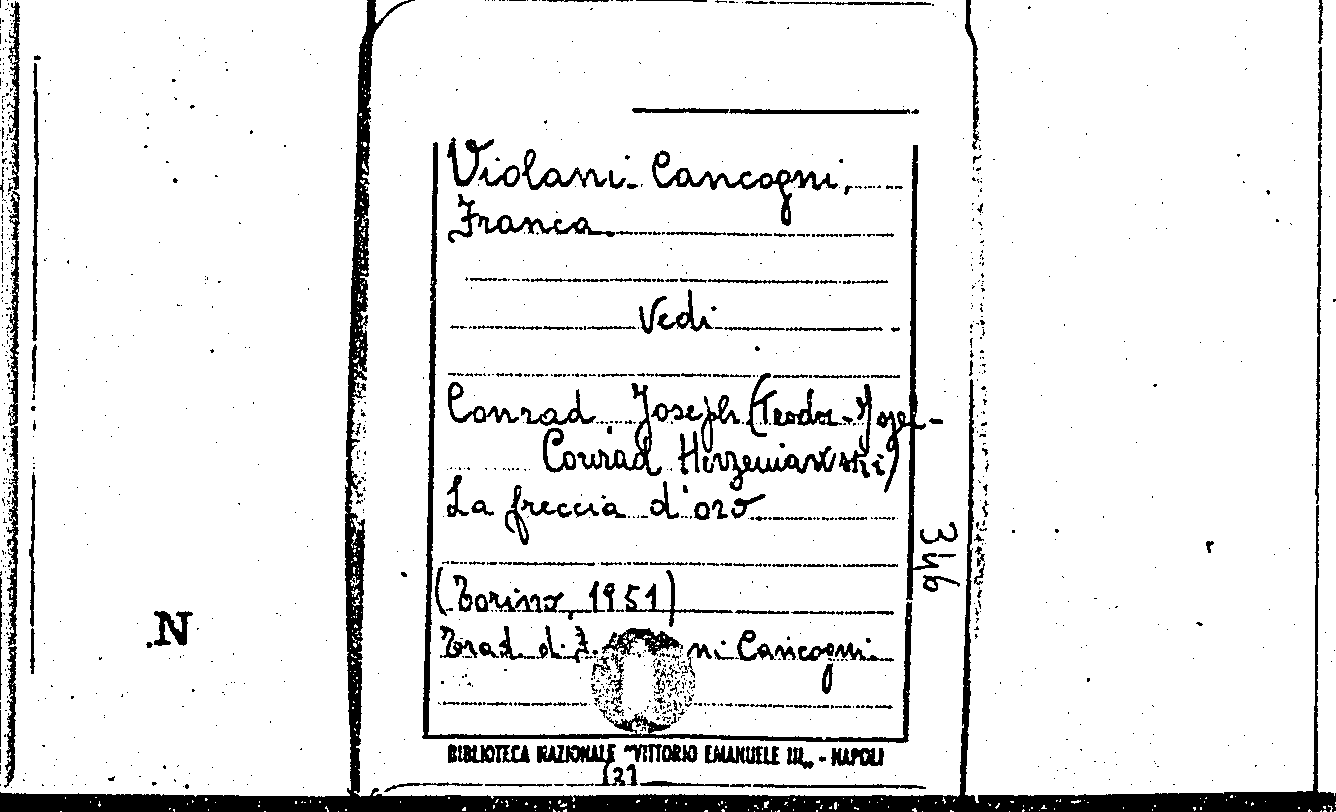 Violani-Cancogni,
Franca.
Vedi
Conrad, Joseph (Teodor-Jozef-
Conrad
La freccia d'oro
(Torino, 1951)
Trad. di F. ni Cancogni.
346
N
BIBLIOTECA NAZIONALE "VITTORIO EMANUELE III„ - NAPOLI